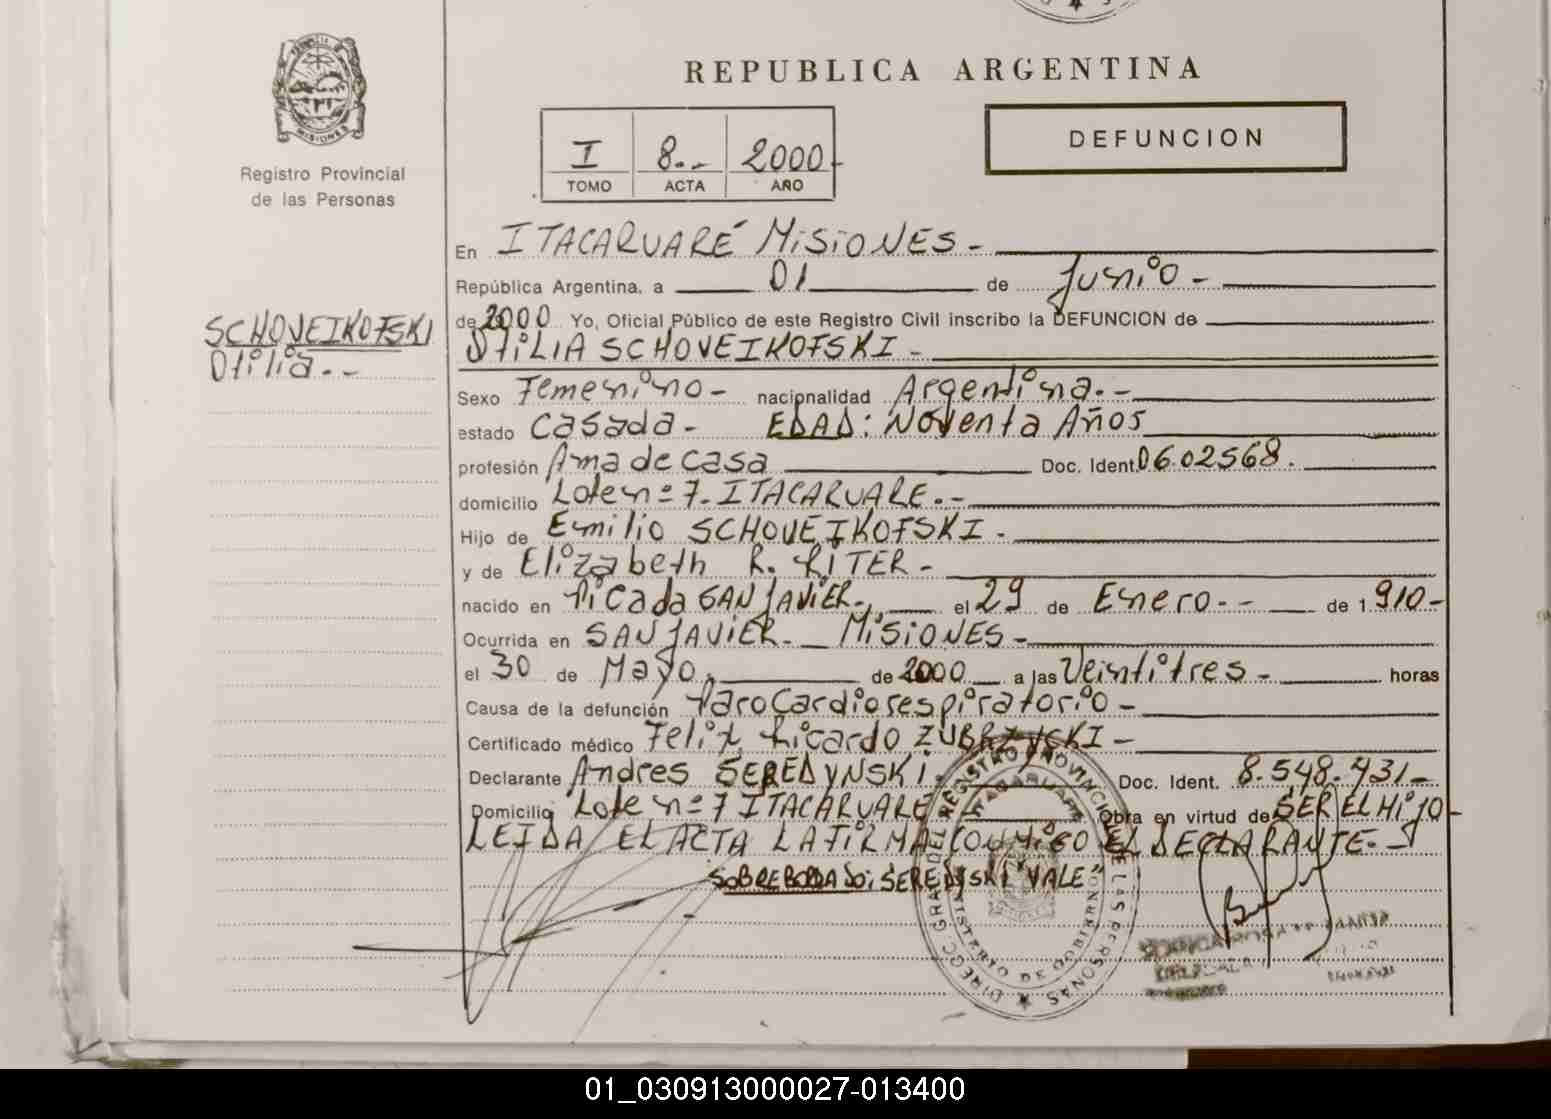 REPUBLICA ARGENTINA
MISIONES
Registro Provincial
de las Personas
I 8.- 2000-
TOMO ACTA AÑO
DEFUNCION
En ITACARUARÉ MiSiONES -
República Argentina, a 01 de Junio -
SCHOVEIKOFSKI
Otilia. -
de 2000 Yo, Oficial Público de este Registro Civil inscribo la DEFUNCION de
OtiLIA SCHOVEIKOFSKI -
Sexo Femenino - nacionalidad Argentina. -
estado casada - EDAD: Noventa Años
profesión Ama de casa Doc. Ident. 0602568.
domicilio Lote nº 7. ITACARUARE. -
Hijo de Emilio SCHOVEIKOFSKI -
y de Elizabeth R. RiTER -
nacido en Picada SAN JAViER. el 29 de Enero - - de 1.910-
Ocurrida en SAN JAViER - MiSiONES -
el 30 de Mayo de 2000 a las Veintitres - horas
Causa de la defunción Paro Cardiorespiratorio -
Certificado médico Felix Ricardo ZUBRZYCKI -
Declarante Andres SEREDYNSKI. Doc. Ident. 8.548.931-
Domicilio Lote nº 7 ITACARUARÉ Obra en virtud de SER EL HiJO -
LEIDA EL ACTA LA FIRMA CONMiGO EL DECLARANTE. -
SOBREBORDADO: SEREDYSKI VALE"
DIRECC. GRAL. DEL REGISTRO PROVINCIAL DE LAS PERSONAS
ITACARUARE
MINISTERIO DE GOBIERNO
DELEGADA
01_030913000027-013400